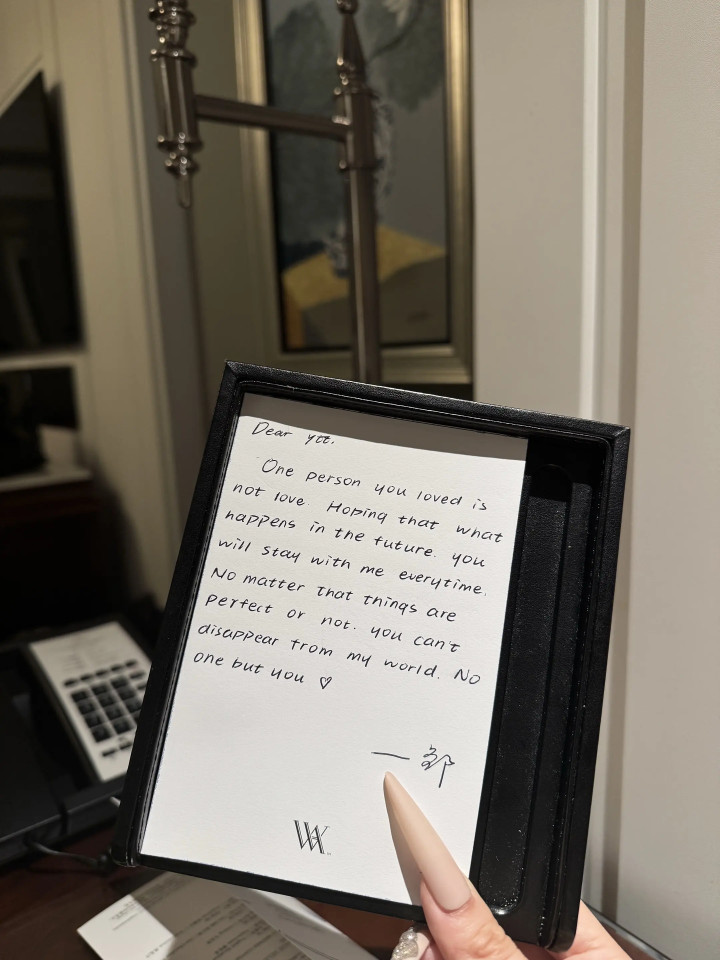 Dear ytt.
One person you loved is
not love. Hoping that what
happens in the future. you
will stay with me everytime.
No matter that things are
perfect or not. you can't
disappear from my world. No
one but you ♡
— 邹